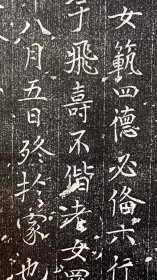 女範四德必俻六行
于飛壽不偕老女四
八月五日終於家也